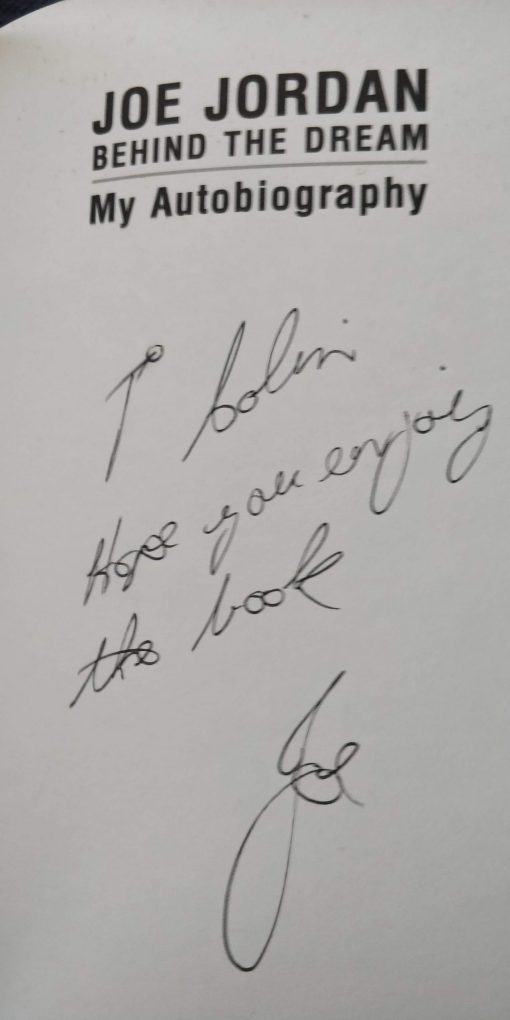 JOE JORDAN
BEHIND THE DREAM
My Autobiography
To Colin
Hope you enjoy
the book
Joe